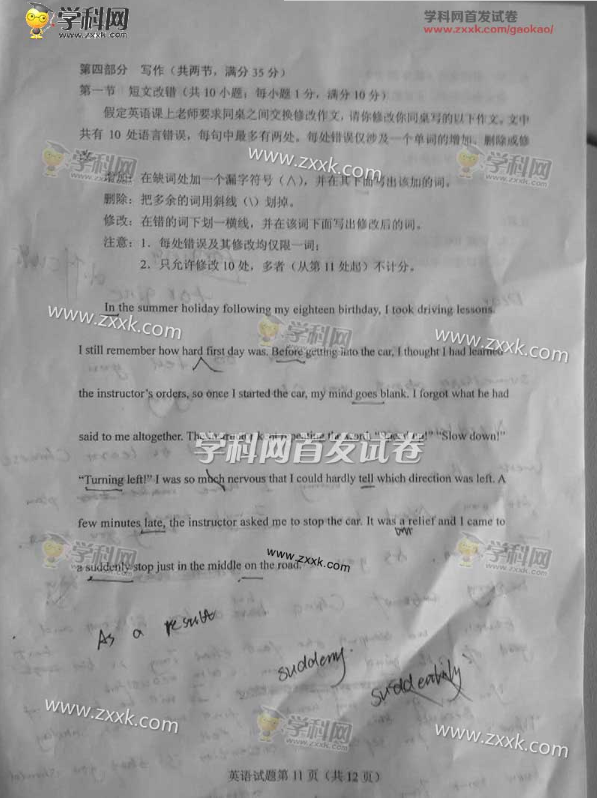 学科网 学科网首发试卷
www.zxxk.com www.zxxk.com/gaokao/
第四部分 写作（共两节，满分 35 分）
第一节 短文改错（共 10 小题；每小题 1 分，满分 10 分）
假定英语课上老师要求同桌之间交换修改作文，请你修改你同桌写的以下作文。文中
共有 10 处语言错误，每句中最多有两处。每处错误仅涉及一个单词的增加、删除或修
学科网 www.zxxk.com 学科网
增加：在缺词处加一个漏字符号（∧），并在其下面写出该加的词。
删除：把多余的词用斜线（\）划掉。
修改：在错的词下划一横线，并在该词下面写出修改后的词。
注意：1．每处错误及其修改均仅限一词；
2．只允许修改 10 处，多者（从第 11 处起）不计分。
In the summer holiday following my eighteen birthday, I took driving lessons.
www.zxxk.com 学科网 www.zxxk.com
I still remember how hard first day was. Before getting into the car, I thought I had learned
the instructor's orders, so once I started the car, my mind goes blank. I forgot what he had
said to me altogether. The "Slow down!"
学科网首发试卷
"Turning left!" I was so much nervous that I could hardly tell which direction was left. A
few minutes late, the instructor asked me to stop the car. It was a relief and I came to
our
学科网 www.zxxk.com 学科网
a suddenly stop just in the middle on the road.
As a result
suddenly.
suddenly
www.zxxk.com 学科网 www.zxxk.com
英语试题第 11 页（共 12 页）